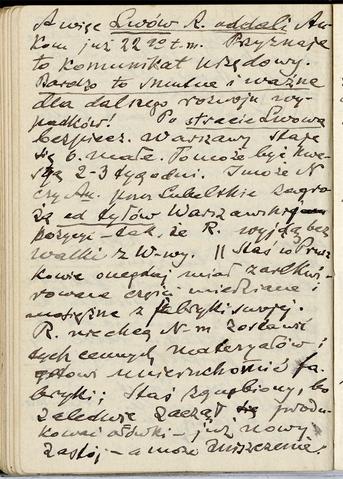 A więc Lwów R. oddali Au-
kom już 22 go t.m. Przyznaje
to komunikat urzędowy.
Bardzo to smutne i ważne
dla dalszego rozwoju wy-
padków! Po stracie Lwowa
bezpiecz. Warszawy staje
się b. małe. To może być kwe-
stją 2-3 tygodni. I może N
czy Au. przez Lubelskie zagro-
żą od tyłów Warszawskiej
pozycji - tak, że R. wyjdą bez
walki z W-wy. || Staś w Prusz-
kowie onegdaj miał zarekwi-
rowane części miedziane i
mosiężne z fabryki swojej.
R. nie chcą N-m zostawić
tych cennych materyałów i
gotowi unieruchomić fa-
bryki; Staś zgnębiony, bo
zaledwie zaczął się produ-
kować ołówki - już nowy
zastój, - a może zniszczenie.